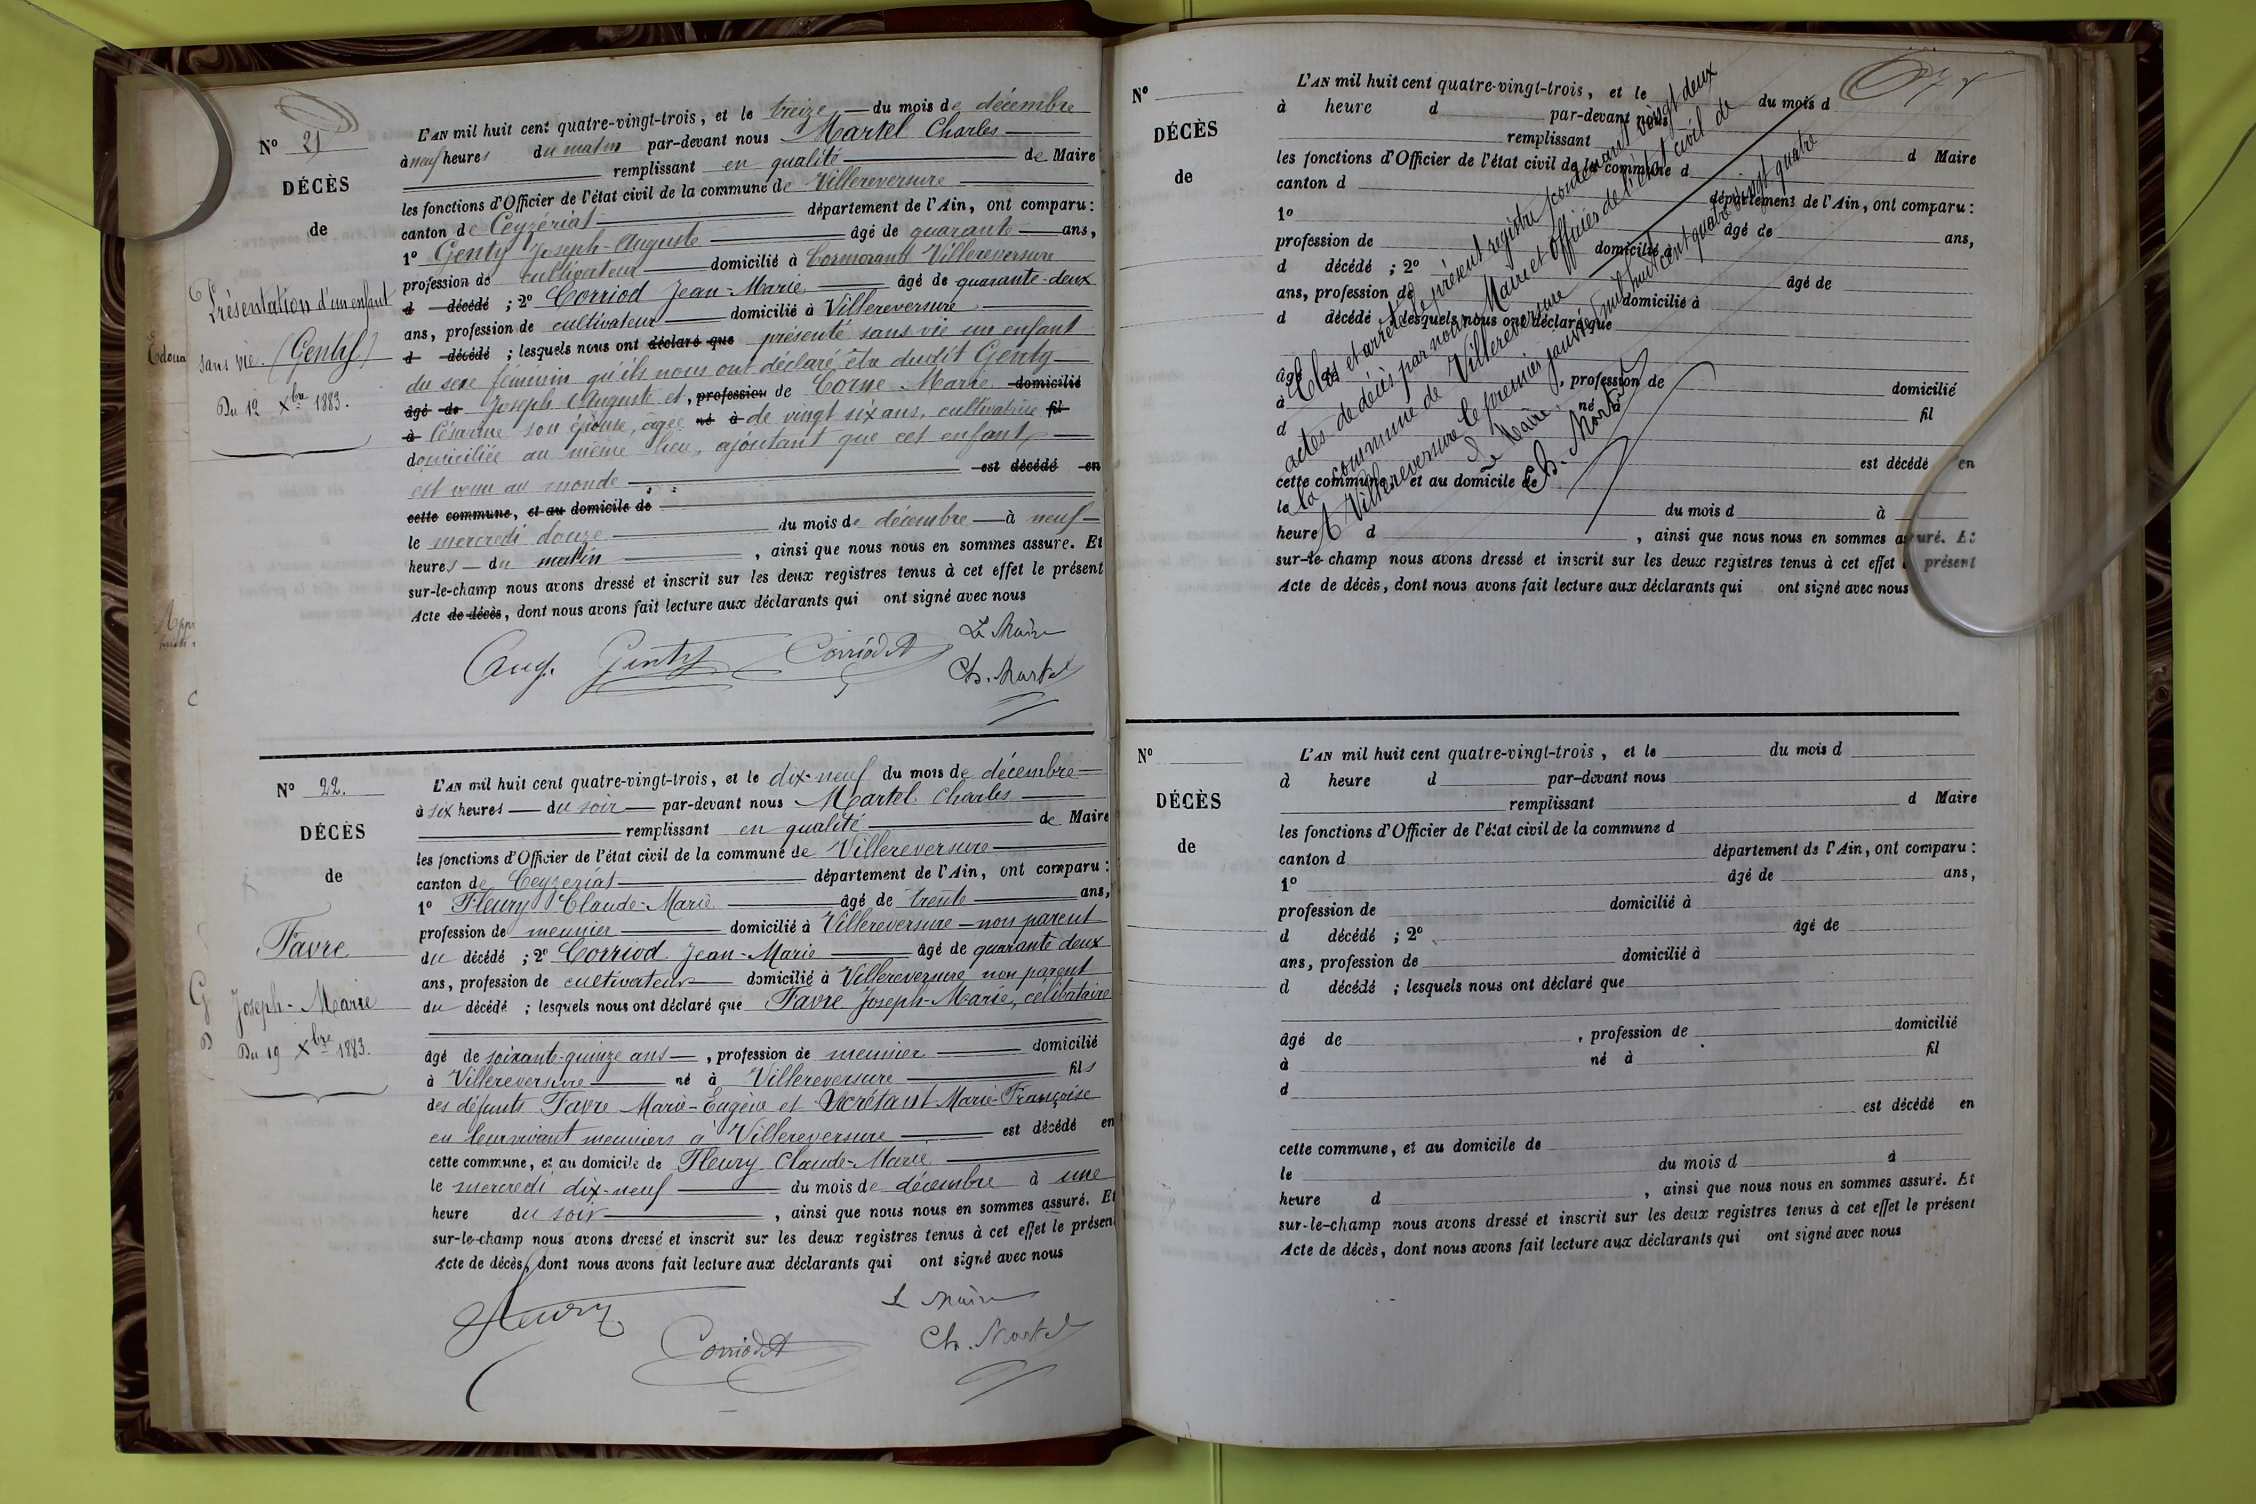 Nº 21
DÉCÈS
de
Présentation d'un enfant
sans vie. (Genty)
Du 12 Xbre 1883.
L'AN mil huit cent quatre-vingt-trois, et le treize du mois de décembre
à neuf heures du matin par-devant nous Martel Charles
remplissant en qualité de Maire
les fonctions d'Officier de l'état civil de la commune de Villereversure
canton de Ceyzériat département de l'Ain, ont comparu:
1º Genty Joseph-Auguste âgé de quarante ans,
profession de cultivateur domicilié à Cormorand Villereversure
d décédé ; 2º Corriod Jean-Marie âgé de quarante-deux
ans, profession de cultivateur domicilié à Villereversure
d décédé ; lesquels nous ont déclaré que présenté sans vie un enfant
du sexe féminin qu'ils nous ont déclaré être dudit Genty
âgé de Joseph Auguste et, profession de Corne Marie domicilié
à Césarine son épouse, âgée né à de vingt six ans, cultivatrice fil
domiciliée au même lieu, ajoutant que cet enfant
est venu au monde est décédé en
cette commune, et au domicile de
le mercredi douze du mois de décembre à neuf
heures du matin, ainsi que nous nous en sommes assuré. Et
sur-le-champ nous avons dressé et inscrit sur les deux registres tenus à cet effet le présent
Acte de décès, dont nous avons fait lecture aux déclarants qui ont signé avec nous
Le Maire
Aug. Genty Corriod
Ch. Martel
Nº 22.
DÉCÈS
de
Favre
Joseph-Marie
Du 19 Xbre 1883.
L'AN mil huit cent quatre-vingt-trois, et le dix-neuf du mois de décembre
à six heures du soir par-devant nous Martel Charles
remplissant en qualité de Maire
les fonctions d'Officier de l'état civil de la commune de Villereversure
canton de Ceyzeriat département de l'Ain, ont comparu:
1º Fleury Claude-Marie âgé de trente ans,
profession de meunier domicilié à Villereversure non parent
du décédé ; 2º Corriod Jean-Marie âgé de quarante deux
ans, profession de cultivateur domicilié à Villereversure non parent
du décédé ; lesquels nous ont déclaré que Favre Joseph-Marie, célibataire
âgé de soixante-quinze ans, profession de meunier domicilié
à Villereversure né à Villereversure fils
des défunts Favre Marie-Eugène et Sécrétant Marie Françoise
en leur vivant meuniers à Villereversure est décédé en
cette commune, et au domicile de Fleury Claude-Marie
le mercredi dix-neuf du mois de décembre à une
heure du soir, ainsi que nous nous en sommes assuré. Et
sur-le-champ nous avons dressé et inscrit sur les deux registres tenus à cet effet le présent
Acte de décès, dont nous avons fait lecture aux déclarants qui ont signé avec nous
Le Maire
Fleury
Corriod
Ch. Martel
Nº
DÉCÈS
de
L'AN mil huit cent quatre-vingt-trois, et le du mois d
à heure d par-devant nous
remplissant
les fonctions d'Officier de l'état civil de la commune d d Maire
canton d département de l'Ain, ont comparu:
1º âgé de ans,
profession de domicilié à
d décédé ; 2º âgé de
ans, profession de domicilié à
d décédé ; lesquels nous ont déclaré que
âgé de, profession de domicilié
à né à fil
d
est décédé en
cette commune, et au domicile de
le du mois d à
heure d, ainsi que nous nous en sommes assuré. Et
sur-le-champ nous avons dressé et inscrit sur les deux registres tenus à cet effet le présent
Acte de décès, dont nous avons fait lecture aux déclarants qui ont signé avec nous
Clos et arrêté le présent registre contenant vingt deux
actes de décès par nous Maire et Officier de l'état civil de
la commune de Villereversure
A Villereversure le premier janvier mil huit cent quatre vingt quatre
Le Maire,
Ch. Martel
Nº
DÉCÈS
de
L'AN mil huit cent quatre-vingt-trois, et le du mois d
à heure d par-devant nous
remplissant d Maire
les fonctions d'Officier de l'état civil de la commune d
canton d département de l'Ain, ont comparu:
1º âgé de ans,
profession de domicilié à
d décédé ; 2º âgé de
ans, profession de domicilié à
d décédé ; lesquels nous ont déclaré que
âgé de, profession de domicilié
à né à fil
d
est décédé en
cette commune, et au domicile de
le du mois d à
heure d, ainsi que nous nous en sommes assuré. Et
sur-le-champ nous avons dressé et inscrit sur les deux registres tenus à cet effet le présent
Acte de décès, dont nous avons fait lecture aux déclarants qui ont signé avec nous